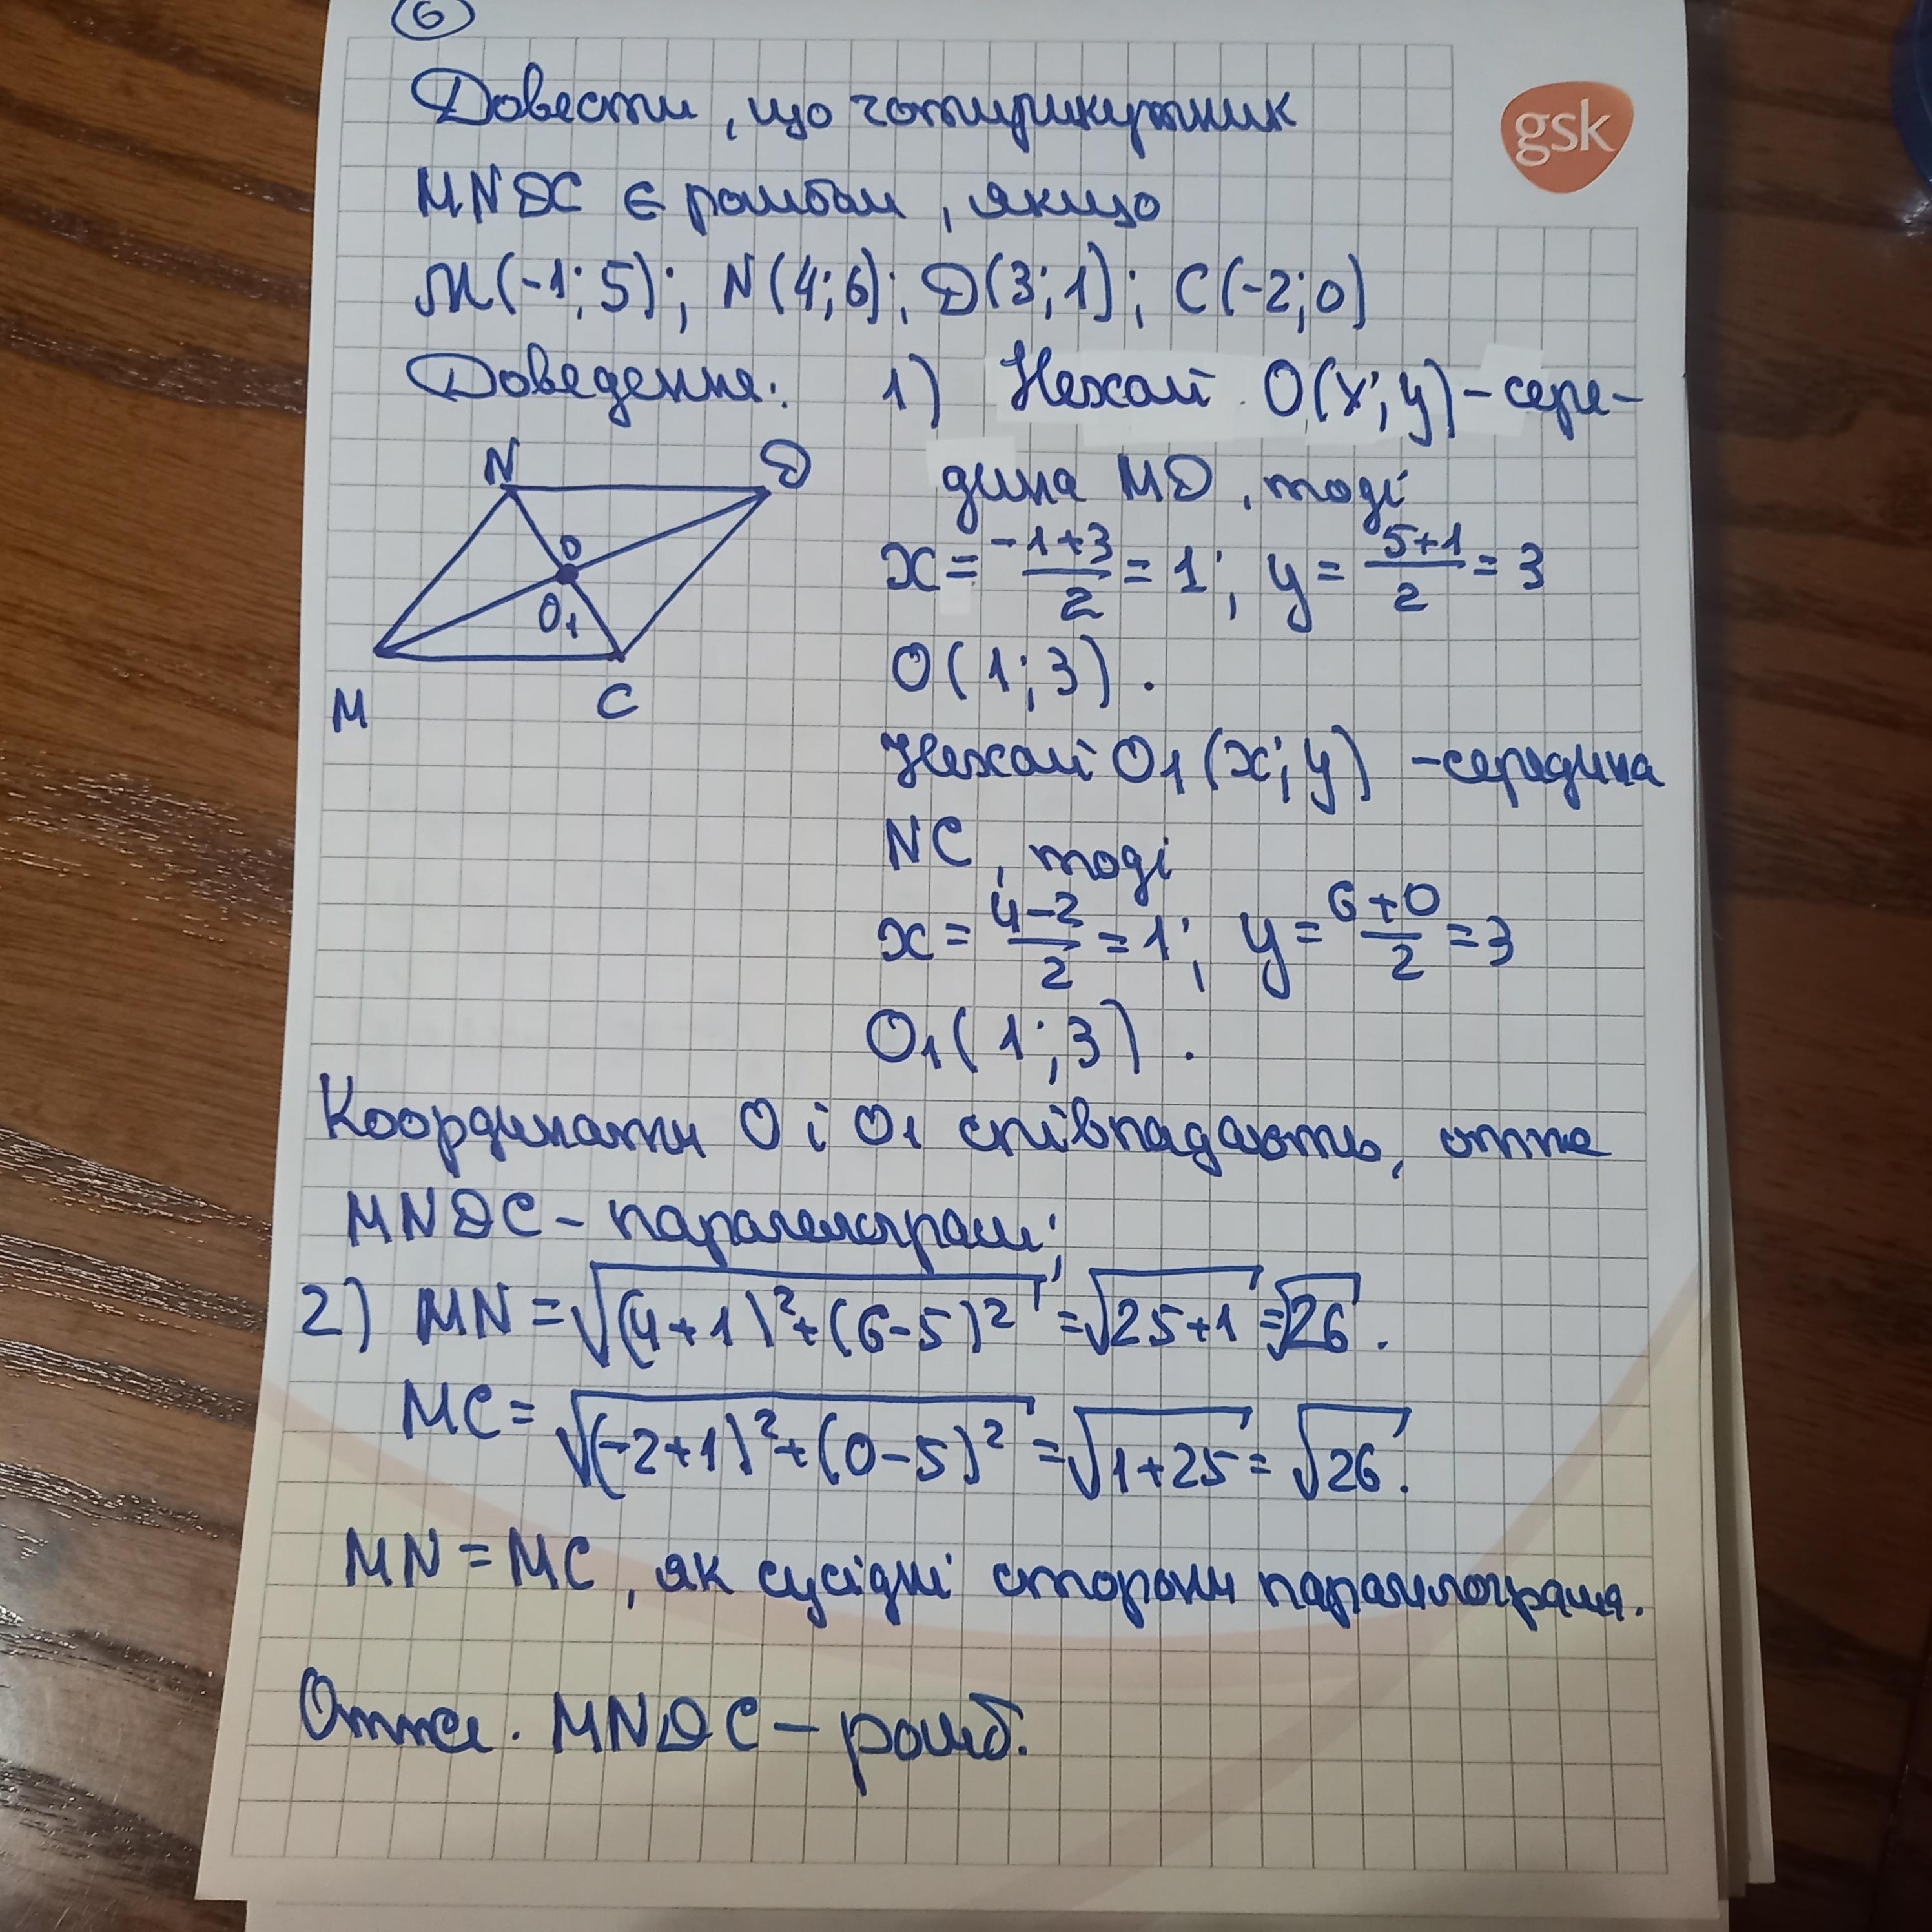 6
gsk
Довести, що чотирикутник
MNDC є ромбом, якщо
M(-1;5); N(4;6); D(3;1); C(-2;0)
Доведення: 1) Нехай O(x;y)-сере-
дина MD, тоді
x = (-1+3)/2 = 1; y = (5+1)/2 = 3
O(1;3).
Нехай O₁(x;y) -середина
NC, тоді
x = (4-2)/2 = 1; y = (6+0)/2 = 3
O₁(1;3).
N D
O
O₁
M C
Координати O і O₁ співпадають, отже
MNDC - паралелограм;
2) MN = √((4+1)²+(6-5)²) = √(25+1) = √26.
MC = √((-2+1)²+(0-5)²) = √(1+25) = √26.
MN = MC, як сусідні сторони паралелограма.
Отже. MNDC – ромб.